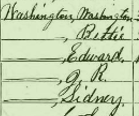 Washington, Washington
———, Bettie
———, Edward
———, J. R.
———, Sidney